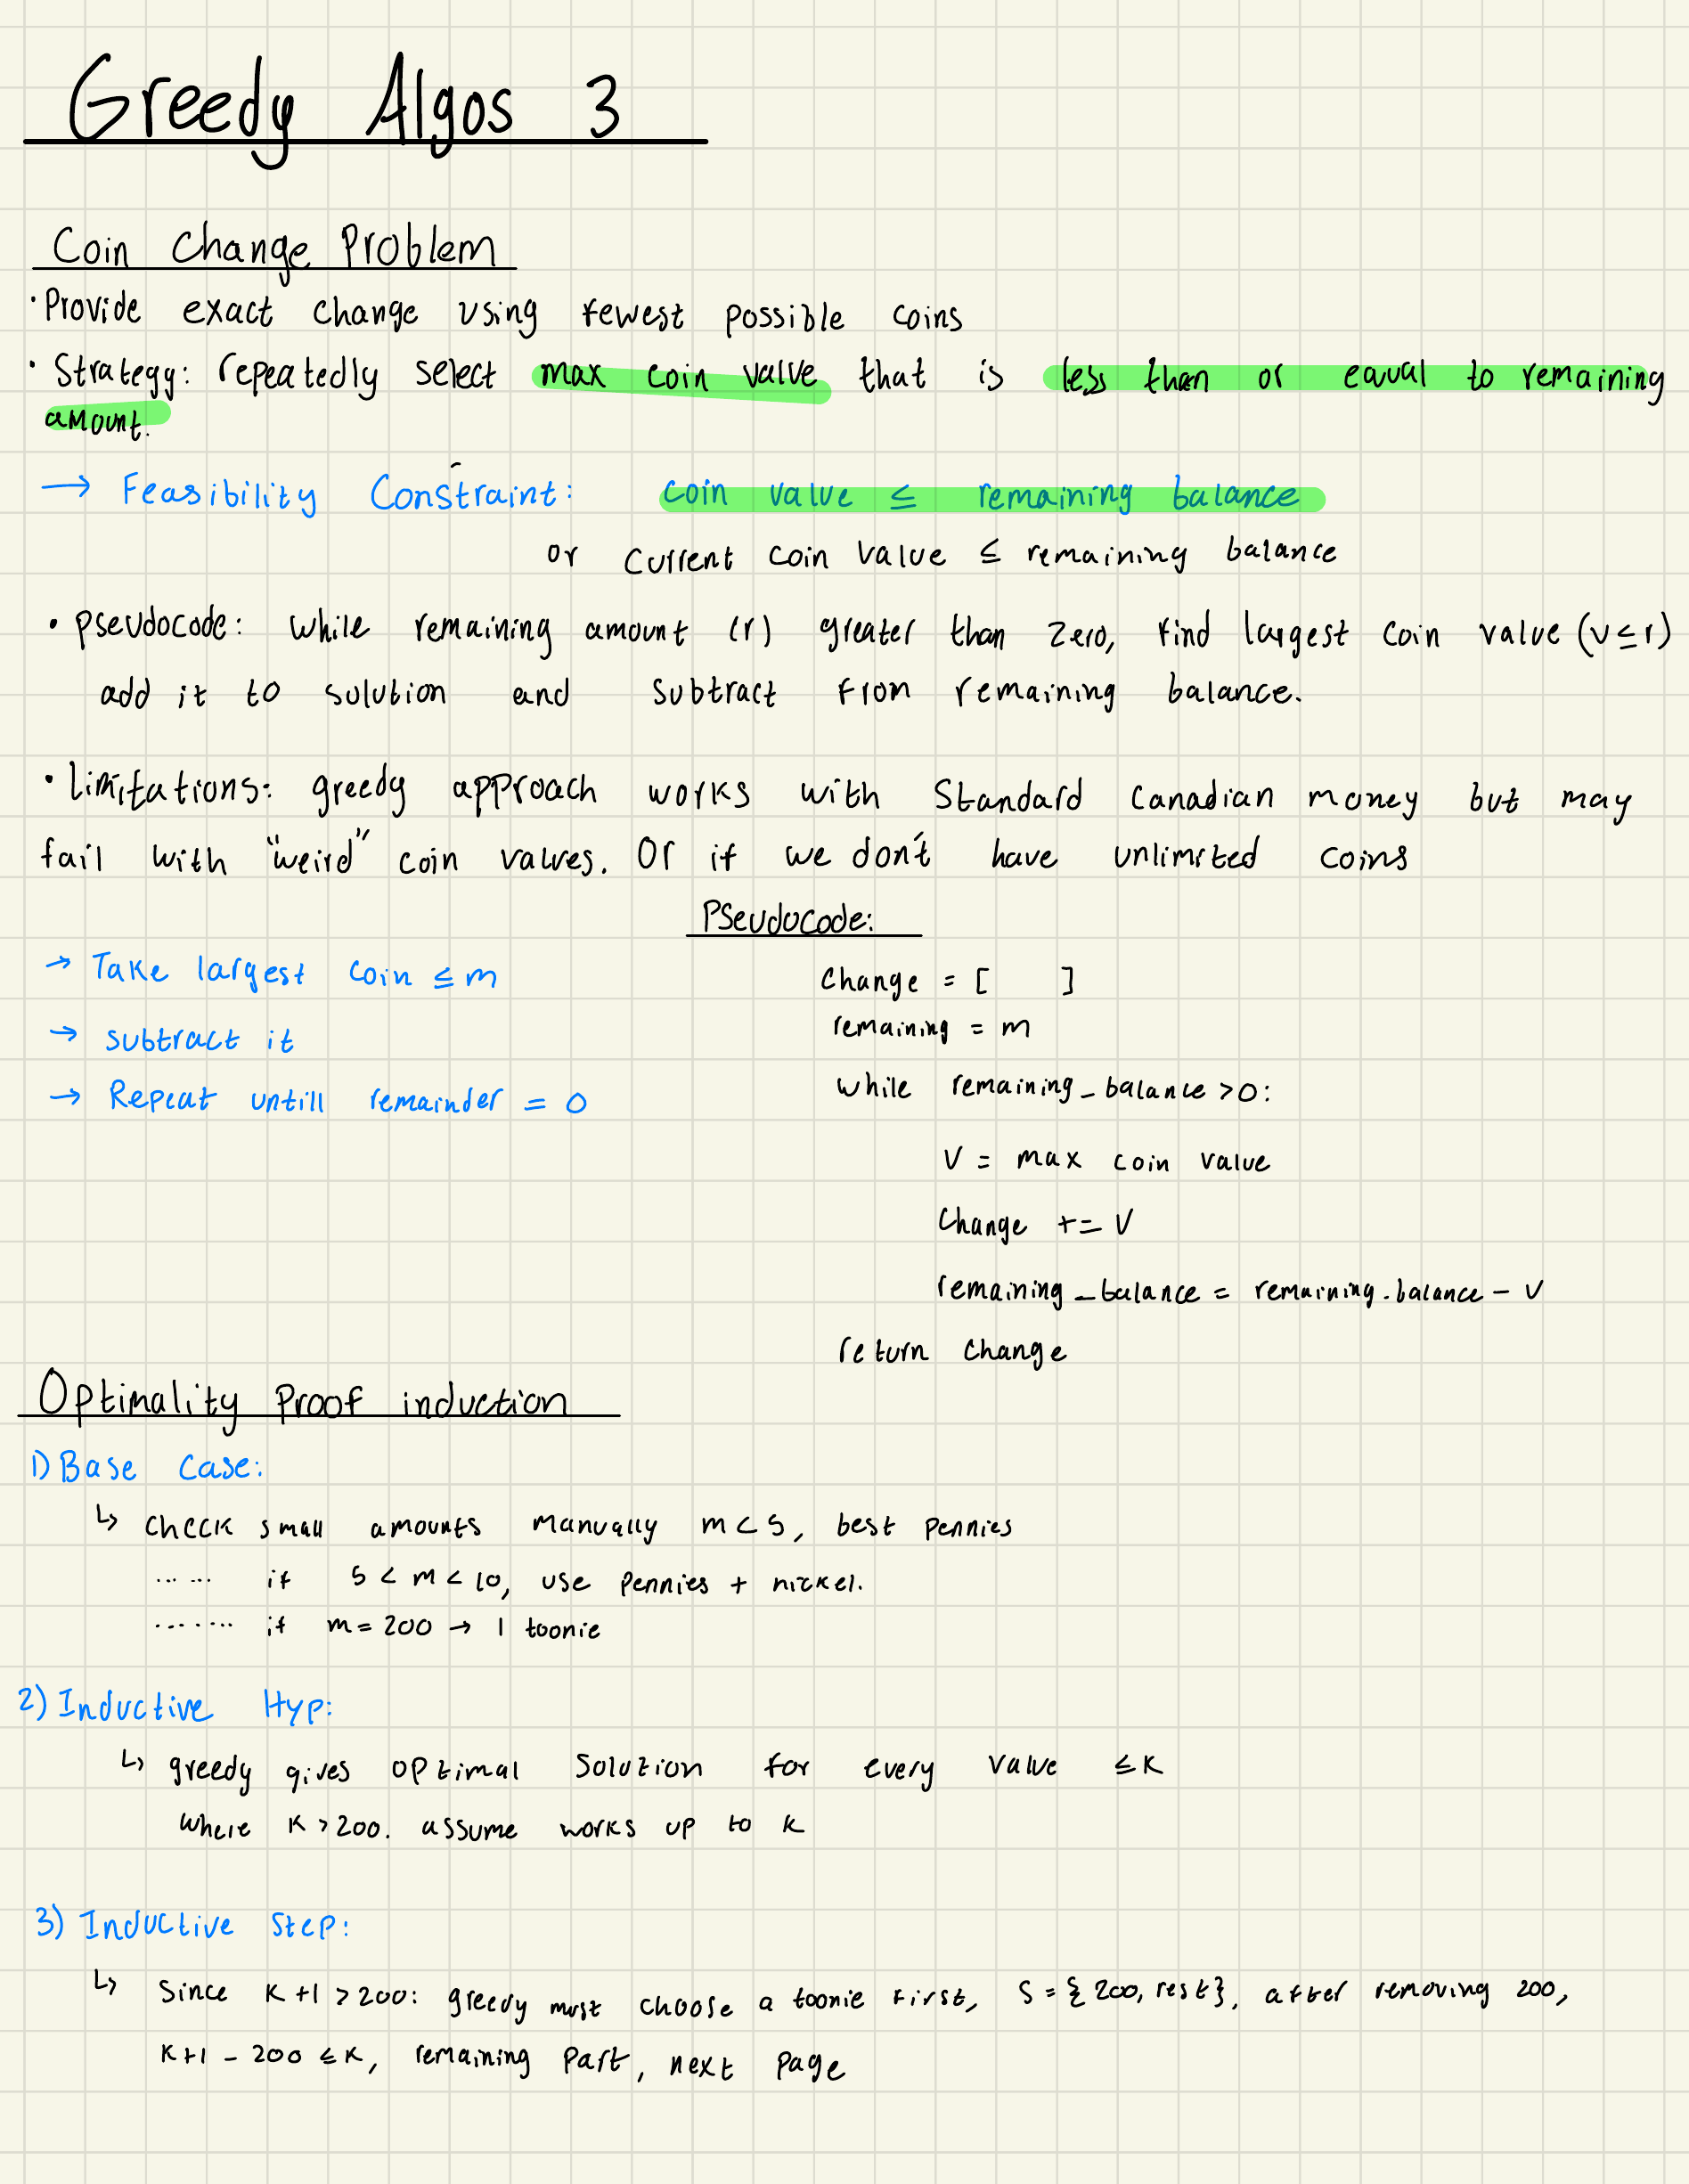 Greedy Algos 3
Coin Change Problem
· Provide exact change using fewest possible coins
· Strategy: repeatedly select max coin value that is less than or equal to remaining
amount.
→ Feasibility Constraint: coin value ≤ remaining balance
or current coin value ≤ remaining balance
· pseudocode: while remaining amount (r) greater than zero, find largest coin value (v≤r)
add it to solution and subtract from remaining balance.
· limitations: greedy approach works with Standard Canadian money but may
fail with "weird" coin values. Or if we don't have unlimited coins
Pseudocode:
→ Take largest coin ≤ m
→ subtract it
→ Repeat untill remainder = 0
Change = [ ]
remaining = m
while remaining_balance > 0:
V = max coin value
Change += V
remaining_balance = remaining_balance - V
return change
Optimality Proof induction
1) Base Case:
↳ check small amounts manually m < 5, best pennies
...... if 5 < m < 10, use pennies + nickel.
....... if m = 200 → 1 toonie
2) Inductive Hyp:
↳ greedy gives optimal solution for every value ≤ K
where K > 200. assume works up to k
3) Inductive Step:
↳ Since K+1 > 200: greedy must choose a toonie first, S = {200, rest}, after removing 200,
K+1 - 200 ≤ K, remaining part, next page